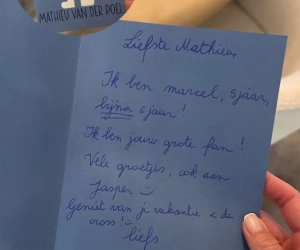 MATHIEU VAN DER POEL
Liefste Mathieu,
Ik ben marcel, 5 jaar,
bijna 6 jaar!
Ik ben jouw grote fan!
Vele groetjes, ook aan
Jasper
Geniet van je vakantie & de
cross!
liefs